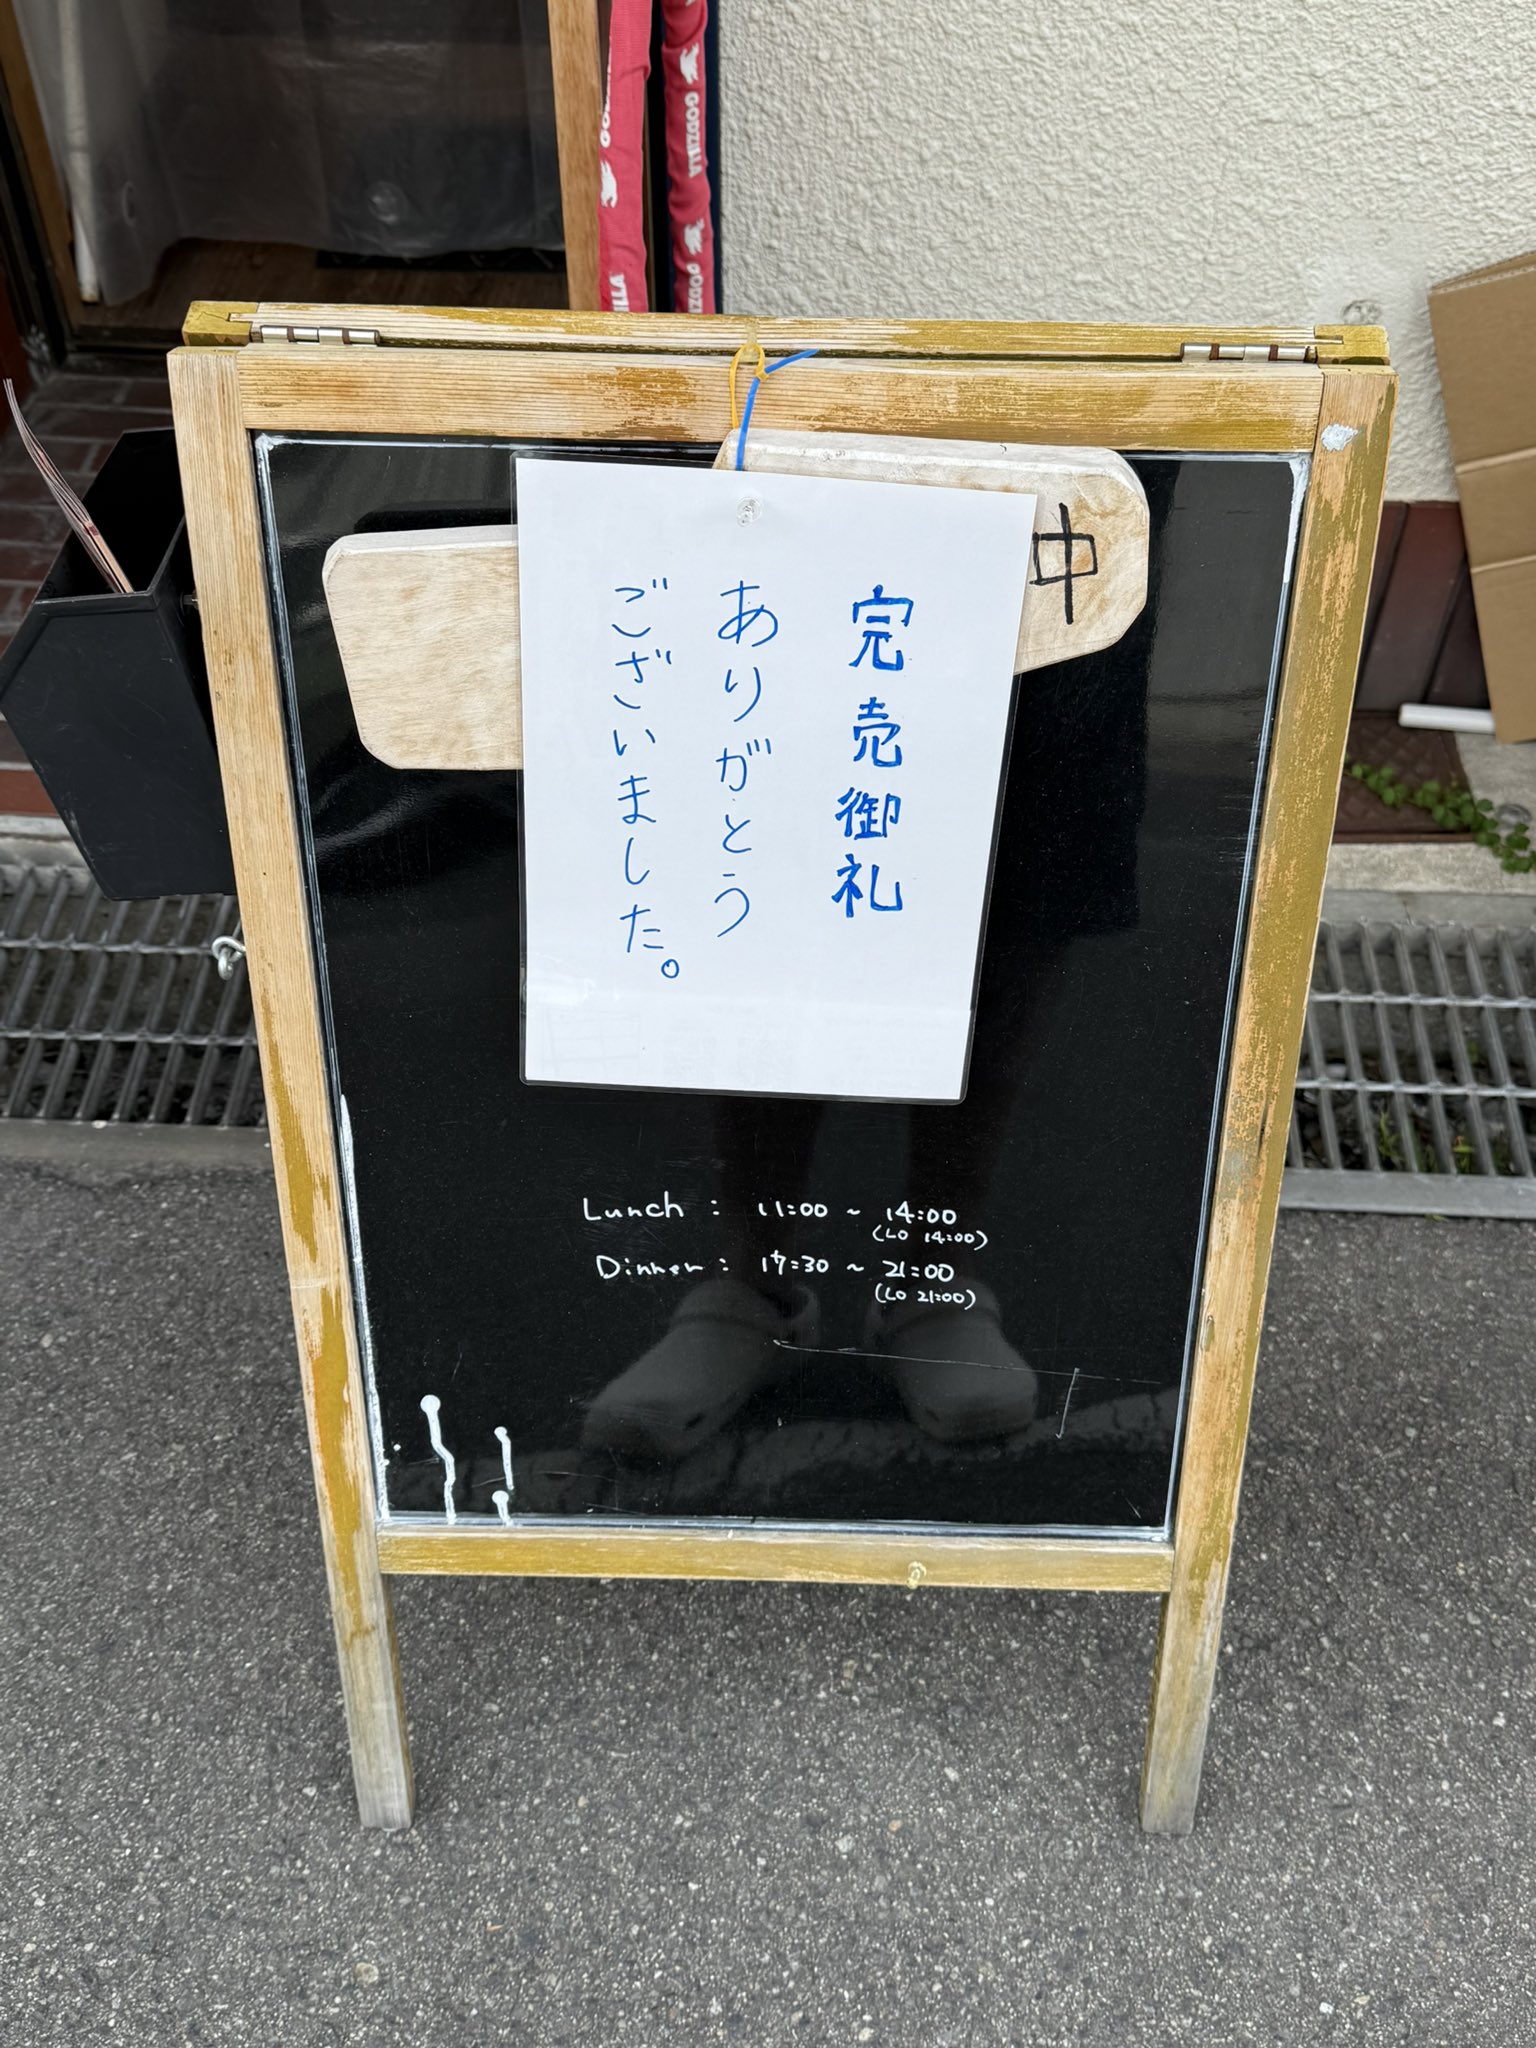 GODZILLA
GODZILLA
中
完売御礼
ありがとう
ございました。
Lunch : 11:00 ~ 14:00
(LO 14:00)
Dinner : 17:30 ~ 21:00
(LO 21:00)